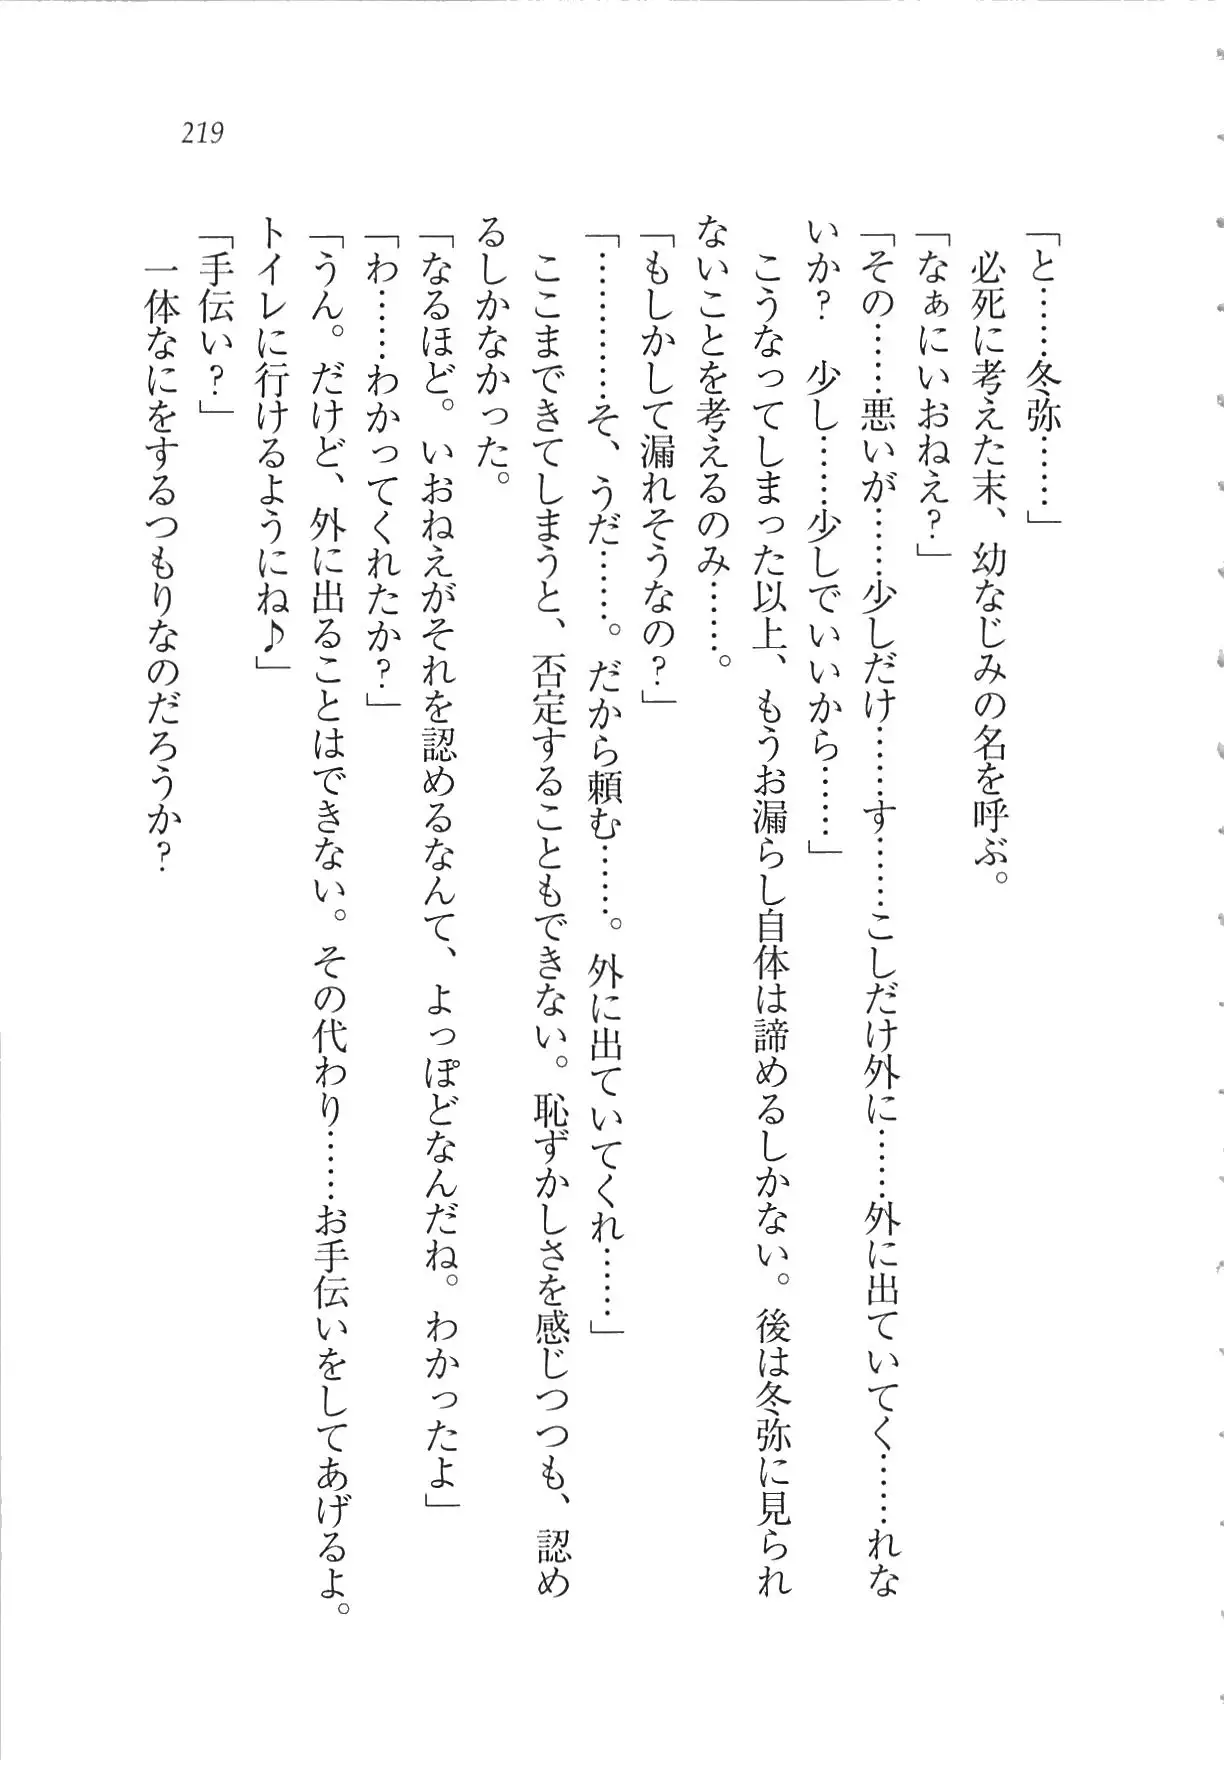 219
「と……冬弥……」
　必死に考えた末、幼なじみの名を呼ぶ。
「なぁにいおねえ?」
「その……悪いが……少しだけ……す……こしだけ外に……外に出ていてく……れな
いか?　少し……少しでいいから……」
　こうなってしまった以上、もうお漏らし自体は諦めるしかない。後は冬弥に見られ
ないことを考えるのみ……。
「もしかして漏れそうなの?」
「…………そ、うだ……。だから頼む……。外に出ていてくれ……」
　ここまできてしまうと、否定することもできない。恥ずかしさを感じつつも、認め
るしかなかった。
「なるほど。いおねえがそれを認めるなんて、よっぽどなんだね。わかったよ」
「わ……わかってくれたか?」
「うん。だけど、外に出ることはできない。その代わり……お手伝いをしてあげるよ。
トイレに行けるようにね♪」
「手伝い?」
　一体なにをするつもりなのだろうか?